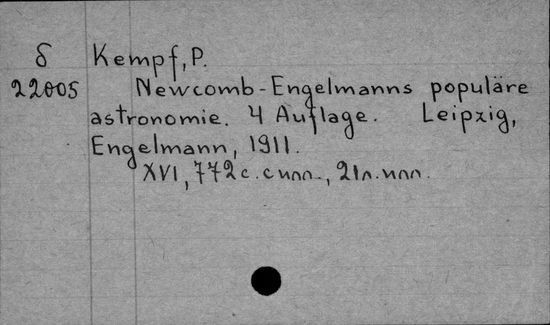 δ Kempf, P.
22005 Newcomb-Engelmanns populäre
astronomie. 4 Auflage. Leipzig,
Engelmann, 1911.
XVI, 772 с. с илл., 21 л. илл.